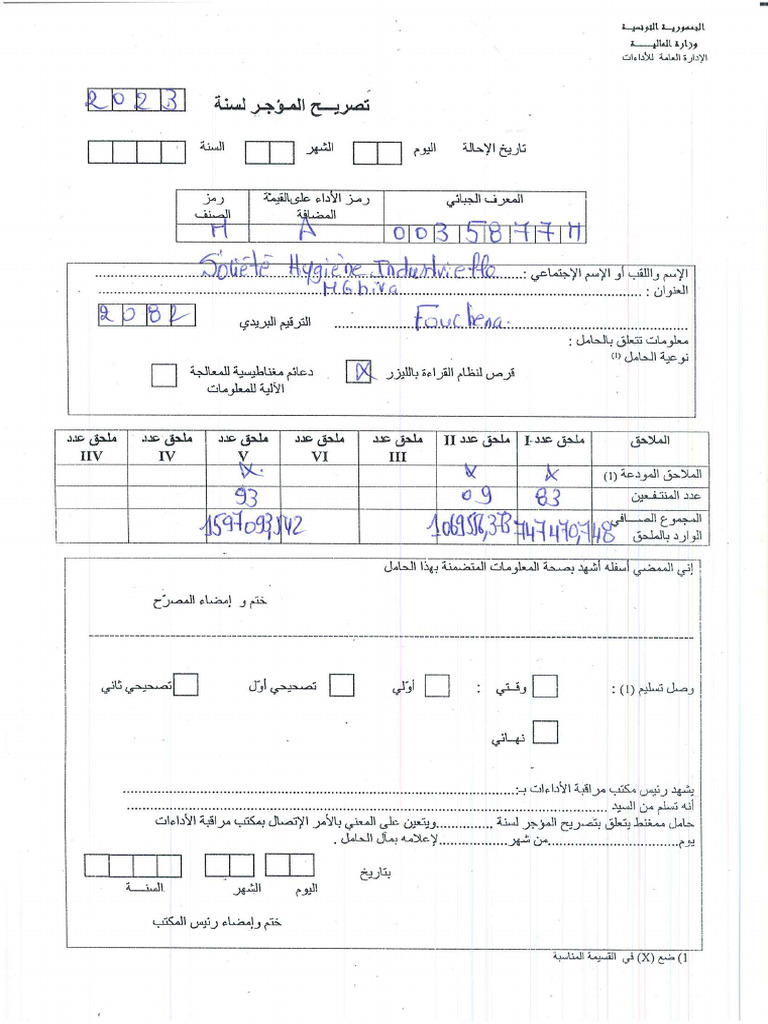 الجمهورية التونسية
وزارة المالية
الإدارة العامة للأداءات
تصريح المؤجر لسنة 2023
تاريخ الإحالة اليوم الشهر السنة
المعرف الجبائي رمز الأداء على القيمة المضافة رمز الصنف
0035877H A M
الإسم واللقب أو الإسم الإجتماعي : Société Hygiène Industrielle
العنوان : MGhira
Fouchena. الترقيم البريدي 2082
معلومات تتعلق بالحامل :
نوعية الحامل (1)
قرص لنظام القراءة بالليزر X دعائم مغناطيسية للمعالجة الآلية للمعلومات
الملاحق ملحق عدد I ملحق عدد II ملحق عدد III ملحق عدد VI ملحق عدد V ملحق عدد IV ملحق عدد VII
الملاحق المودعة (1) X X X
عدد المنتفعين 83 09 93
المجموع الصافي الوارد بالملحق 747470,748 106956,373 1597093,542
إني الممضي أسفله أشهد بصحة المعلومات المتضمنة بهذا الحامل
ختم و إمضاء المصرّح
وصل تسليم (1) : وقتي : أوّلي تصحيحي أوّل تصحيحي ثاني
نهائي
يشهد رئيس مكتب مراقبة الأداءات بـ:
أنه تسلم من السيد
حامل ممغنط يتعلق بتصريح المؤجر لسنة ويتعين على المعني بالأمر الإتصال بمكتب مراقبة الأداءات
يوم من شهر لإعلامه بمآل الحامل .
بتاريخ
اليوم الشهر السنة
ختم وإمضاء رئيس المكتب
1) ضع (X) في القسيمة المناسبة